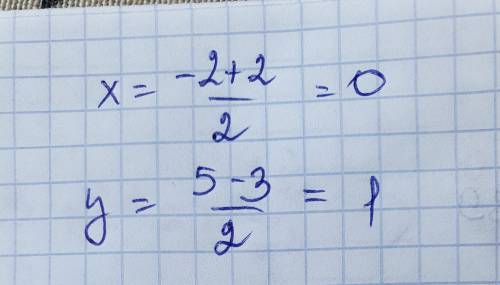 x = (-2+2)/2 = 0
y = (5-3)/2 = 1